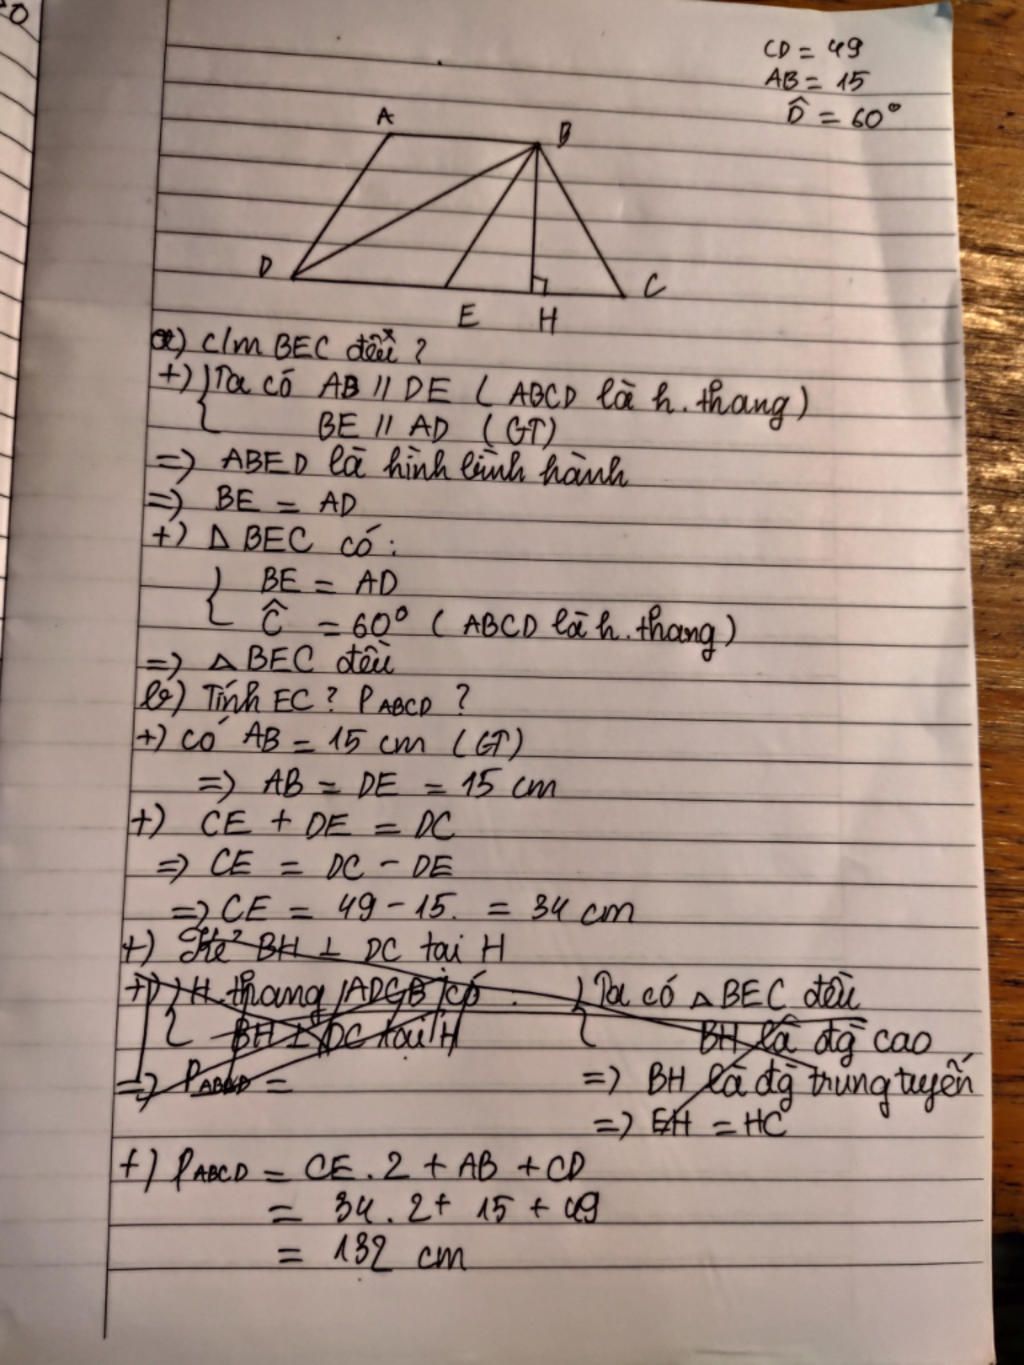 20
CD = 49
AB = 15
D̂ = 60°
A
B
D
C
E
H
a) c/m BEC đều ?
+) Ta có AB // DE ( ABCD là h.thang )
BE // AD ( GT )
=> ABED là hình bình hành
=> BE = AD
+) Δ BEC có :
BE = AD
Ĉ = 60° ( ABCD là h.thang )
=> Δ BEC đều
b) Tính EC ? PABCD ?
+) có AB = 15 cm ( GT )
=> AB = DE = 15 cm
+) CE + DE = DC
=> CE = DC - DE
=> CE = 49 - 15. = 34 cm
+) Kẻ BH ⊥ DC tại H
+) H.thang ADCB có :
BH ⊥ DC tại H
=> PABCD =
Ta có Δ BEC đều
BH là đg cao
=> BH là đg trung tuyến
=> EH = HC
+) PABCD = CE . 2 + AB + CD
= 34 . 2 + 15 + 49
= 132 cm